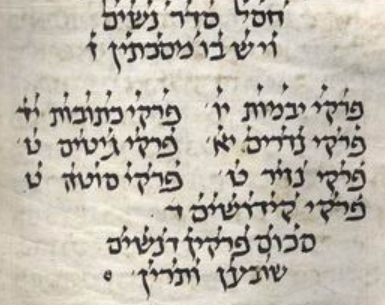 חסל סדר נשים
ויש בו מסכתין ז
פרקי יבמות יו פרקי כתובות יד
פרקי נדרים יא פרקי גיטים ט
פרקי נזיר ט פרקי סוטה ט
פרקי קידושים ד
סכום פרקין דנשים
שובעין ותרין